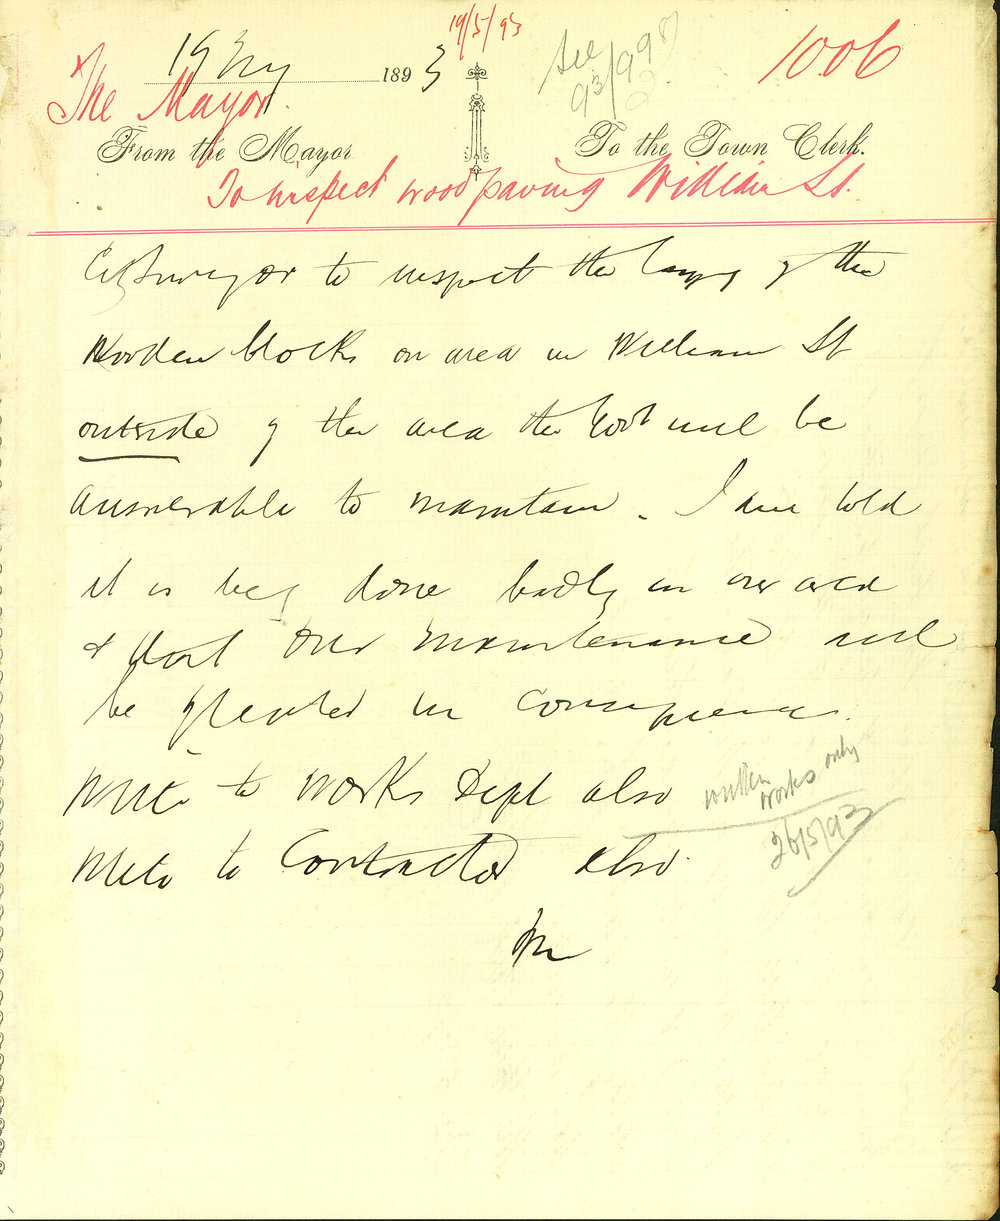 19/5/93
19 My 1893
See 93/998
1006
The Mayor.
From the Mayor
To the Town Clerk.
To inspect wood paving William St.
City Surveyor to inspect the laying of the
Wooden blocks on area in William St
outside of the area the Govt will be
answerable to maintain. I am told
it is beg done badly in our area
& that our maintenance will
be greater in consequence.
Write to Works Dept also
written works only
26/5/93
Write to Contractor also.